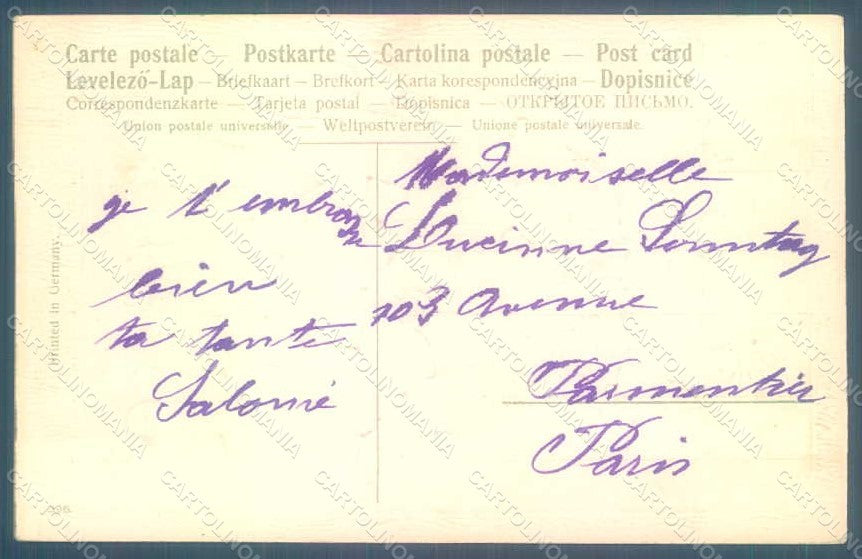 Carte postale — Postkarte — Cartolina postale — Post card
Levelező-Lap — Briefkaart — Brefkort — Karta korespondencyjna — Dopisnice
Correspondenzkarte — Tarjeta postal — Dopisnica — ОТКРЫТОЕ ПИСЬМО.
Union postale universelle. — Weltpostverein — Unione postale universale.
je t'embrasse
bien
ta tante
Salomé
Mademoiselle
Lucinne Sonntag
103 Avenue
Parmentier
Paris
Printed in Germany.
CARTOLINOMANIA